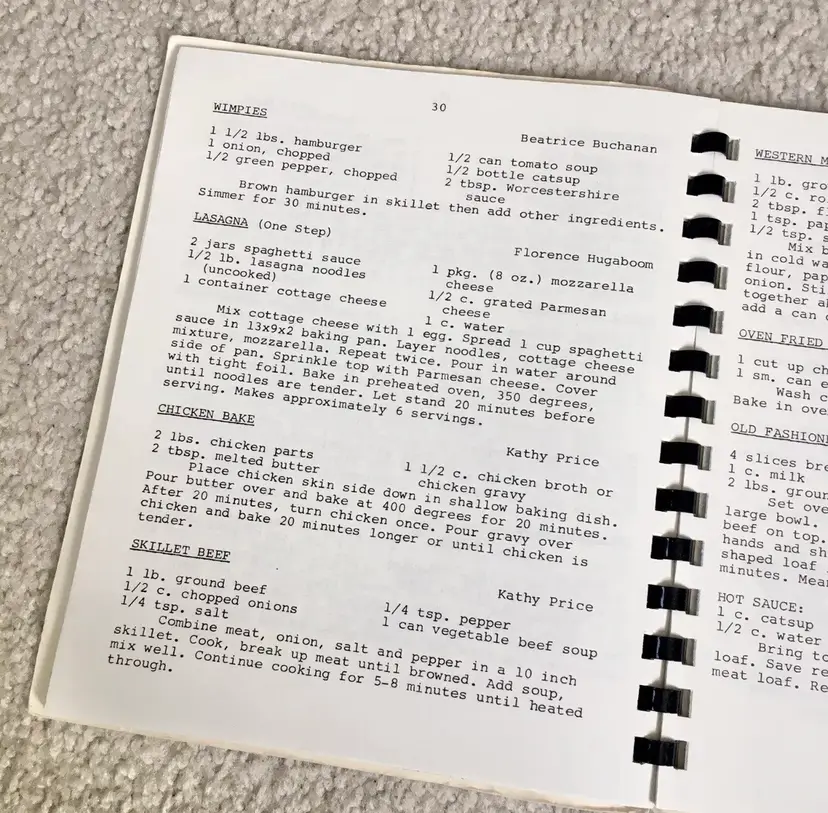 30
WIMPIES
Beatrice Buchanan
1 1/2 lbs. hamburger
1 onion, chopped
1/2 green pepper, chopped
1/2 can tomato soup
1/2 bottle catsup
2 tbsp. Worcestershire
sauce
Brown hamburger in skillet then add other ingredients.
Simmer for 30 minutes.
LASAGNA (One Step)
Florence Hugaboom
2 jars spaghetti sauce
1/2 lb. lasagna noodles
(uncooked)
1 container cottage cheese
1 pkg. (8 oz.) mozzarella
cheese
1/2 c. grated Parmesan
cheese
1 c. water
Mix cottage cheese with 1 egg. Spread 1 cup spaghetti
sauce in 13x9x2 baking pan. Layer noodles, cottage cheese
mixture, mozzarella. Repeat twice. Pour in water around
side of pan. Sprinkle top with Parmesan cheese. Cover
with tight foil. Bake in preheated oven, 350 degrees,
until noodles are tender. Let stand 20 minutes before
serving. Makes approximately 6 servings.
CHICKEN BAKE
Kathy Price
2 lbs. chicken parts
2 tbsp. melted butter
1 1/2 c. chicken broth or
chicken gravy
Place chicken skin side down in shallow baking dish.
Pour butter over and bake at 400 degrees for 20 minutes.
After 20 minutes, turn chicken once. Pour gravy over
chicken and bake 20 minutes longer or until chicken is
tender.
SKILLET BEEF
Kathy Price
1 lb. ground beef
1/2 c. chopped onions
1/4 tsp. salt
1/4 tsp. pepper
1 can vegetable beef soup
Combine meat, onion, salt and pepper in a 10 inch
skillet. Cook, break up meat until browned. Add soup,
mix well. Continue cooking for 5-8 minutes until heated
through.
WESTERN M
1 lb. gro
1/2 c. ro
2 tbsp. f
1 tsp. pap
1/2 tsp. s
Mix b
in cold wa
flour, pap
onion. Sti
together a
add a can
OVEN FRIED
1 cut up ch
1 sm. can e
Wash c
Bake in ove
OLD FASHION
4 slices bre
1 c. milk
2 lbs. groun
Set ove
large bowl.
beef on top.
hands and sh
shaped loaf
minutes. Mea
HOT SAUCE:
1 c. catsup
1/2 c. water
Bring to
loaf. Save re
meat loaf. Re